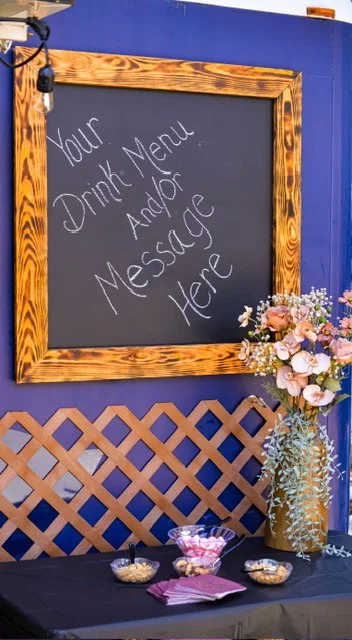 Your
Drink Menu
And/or
Message
Here